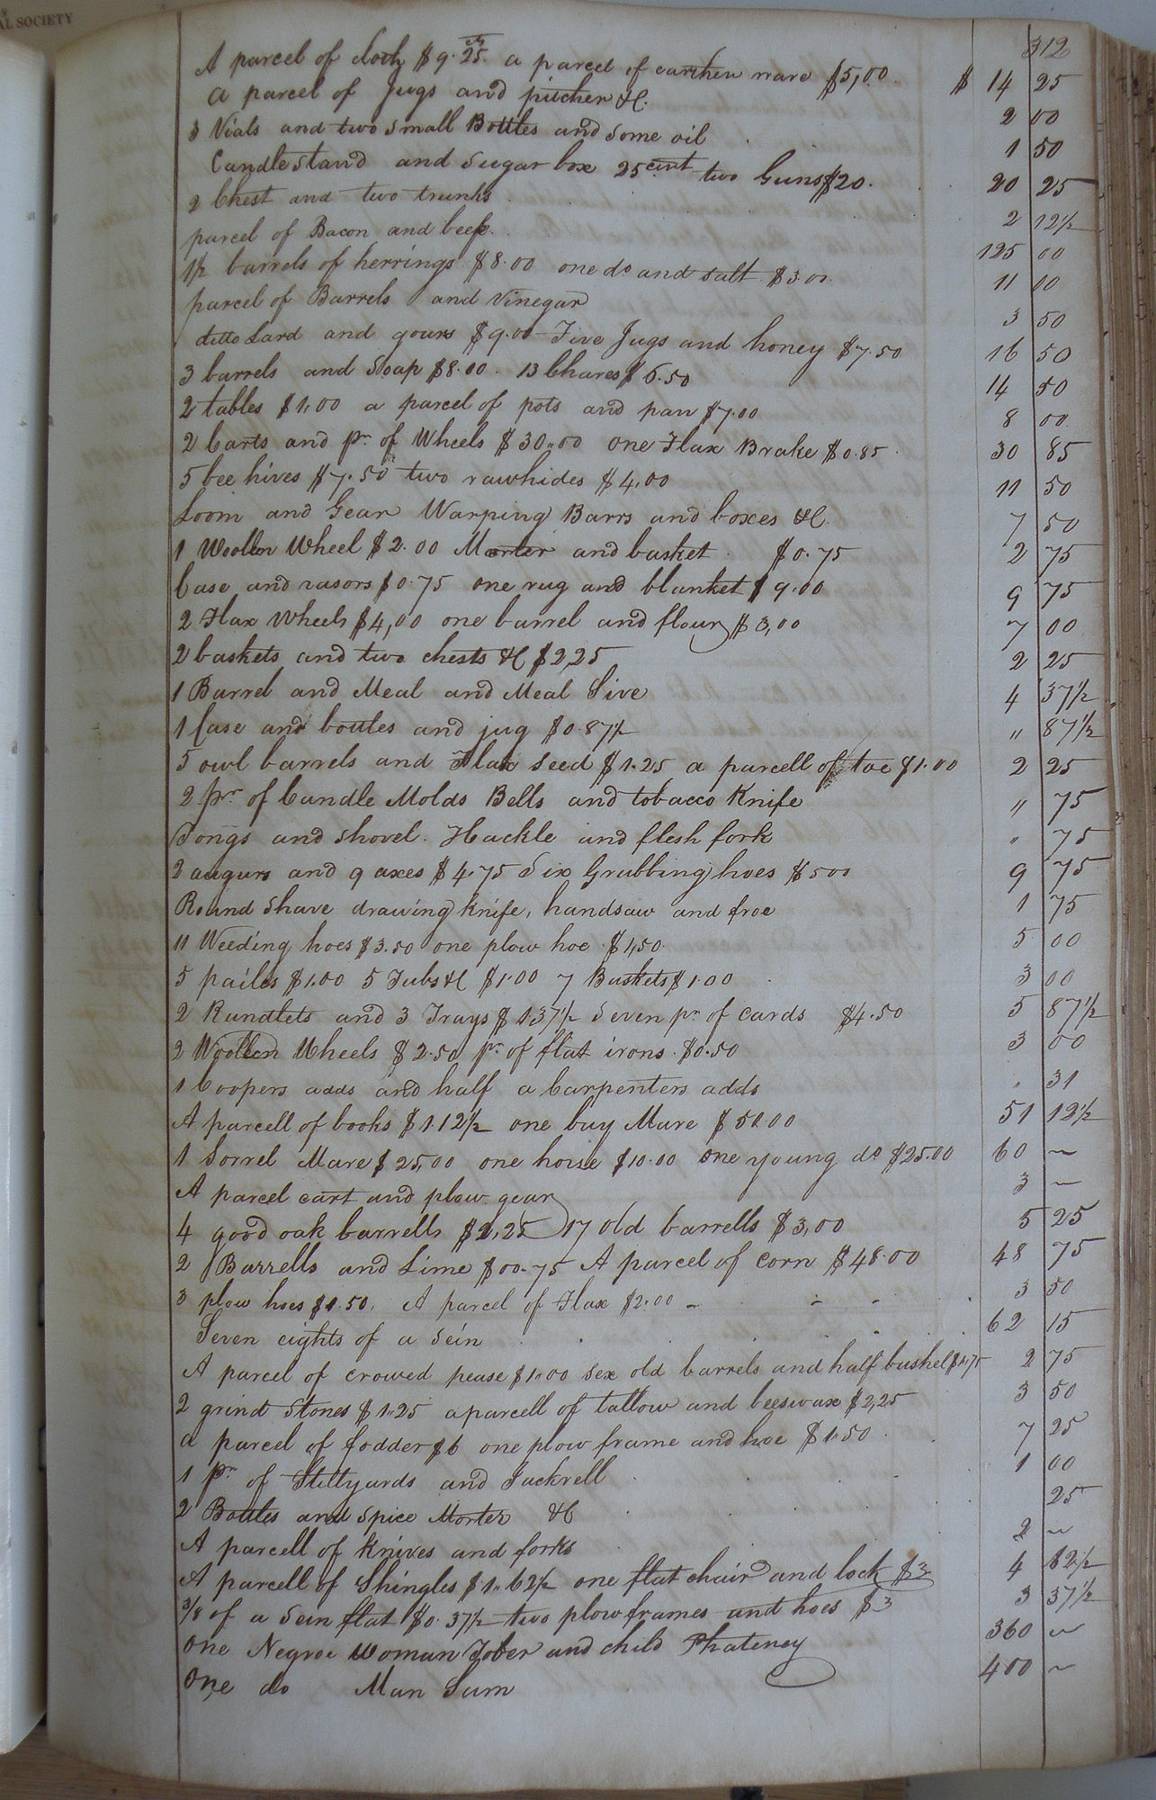 AL SOCIETY
312
A parcel of cloth $9.25 cts a parcel of earthen ware $5,00 $ 14 25
a parcel of Jugs and pitcher &C. 2 00
3 Vials and two small Bottles and some oil 1 50
Candle stand and Sugar box 25 cent two Guns $20. 20 25
2 Chest and two trunks 2 12½
parcel of Bacon and beef. 125 00
1½ barrels of herrings $8.00 one do and salt $3.00 11 00
parcel of Barrels and Vinegar 3 50
ditto Lard and gours $9.00 Five Jugs and honey $7.50 16 50
3 barrels and Soap $8.00. 13 Chares $6.50 14 50
2 tables $1,00 a parcel of pots and pan $7.00 8 00
2 Carts and pr. of Wheels $30.00 one Flax Brake $0.85 30 85
5 bee hives $7.50 two rawhides $4,00 11 50
Loom and Gear Warping Barrs and boxes &C. 7 50
1 Woollen Wheel $2.00 Morter and basket $0.75 2 75
Case and rasors $0.75 one rug and blanket $9.00 9 75
2 Flax Wheels $4,00 one barrel and flour $3,00 7 00
2 baskets and two chests &C $2,25 2 25
1 Barrel and Meal and Meal Sive 4 37½
1 Case and bottles and jug $0.87½ " 87½
5 owl barrels and Flax seed $1.25 a parcell of toe $1.00 2 25
2 pr. of Candle Molds Bells and tobacco Knife " 75
Tongs and shovel. Hackle and flesh fork " 75
2 augurs and 9 axes $4.75 Six Grubbing hoes $500 9 75
Round Shave drawing knife, handsaw and froe 1 75
11 Weeding hoes $3.50 one plow hoe $1,50 5 00
5 pailes $1.00 5 Tubs &C $1.00 7 Baskets $1.00 3 00
2 Rundlets and 3 Trays $1.37½ Seven pr. of cards $4.50 5 87½
2 Woollen Wheels $2.50 pr. of flat irons $0.50 3 00
1 Coopers adds and half a Carpenters adds 31
A parcell of books $1.12½ one bay Mare $50.00 51 12½
1 Sorrel Mare $25,00 one horse $10.00 one young do $25.00 60 ~
A parcel cart and plow gear 3 ~
4 good oak barrells $2,25 17 old barrells $3,00 5 25
2 Barrells and Lime $00.75 A parcel of corn $48.00 48 75
3 plow hoes $1.50. A parcel of Flax $2.00 3 50
Seven eights of a sein 62 15
A parcel of crowed pease $1.00 sex old barrels and half bushel $1.75 2 75
2 grind Stones $1.25 a parcell of tallow and beeswax $2,25 3 50
a parcel of fodder $6 one plow frame and hoe $1.50 7 25
1 pr. of Stillyards and 1 00
2 Bottles and Spice Morter &C 25
A parcell of knives and forks 2 ~
A parcell of Shingles $1.62½ one flat chair and lock $3 4 62½
3/8 of a Sein flat $0.37½ two plow frames and hoes $3 3 37½
One Negroe Woman and child 360 ~
One do Man Sum 400 ~